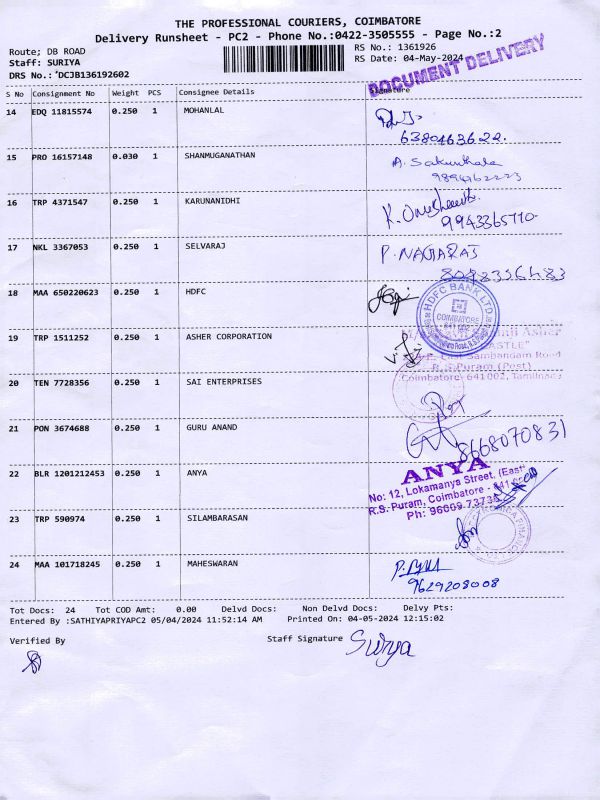 THE PROFESSIONAL COURIERS, COIMBATORE
Delivery Runsheet - PC2 - Phone No.:0422-3505555 - Page No.:2
Route; DB ROAD
RS No.: 1361926
Staff: SURIYA
RS Date: 04-May-2024
DRS No.: *DCJB136192602
DOCUMENT DELIVERY
S No Consignment No Weight PCS Consignee Details Signature
14 EDQ 11815574 0.250 1 MOHANLAL
6380463622.
15 PRO 16157148 0.030 1 SHANMUGANATHAN
A. Sakunthala
9894762223
16 TRP 4371547 0.250 1 KARUNANIDHI
K.
9943365770-
17 NKL 3367053 0.250 1 SELVARAJ
P. NAGARAJ
8092356483
18 MAA 650220623 0.250 1 HDFC
HDFC BANK LTD
COIMBATORE
641 002
19 TRP 1511252 0.250 1 ASHER CORPORATION
Asher
CASTLE"
Sambandam Road
R.S.Puram (Post)
Coimbatore-641002, Tamilnadu
20 TEN 7728356 0.250 1 SAI ENTERPRISES
21 PON 3674688 0.250 1 GURU ANAND
8668070831
22 BLR 1201212453 0.250 1 ANYA
ANYA
No: 12, Lokamanya Street, (East)
R.S. Puram, Coimbatore - 641
Ph: 96009 7373
23 TRP 590974 0.250 1 SILAMBARASAN
FINANCE
24 MAA 101718245 0.250 1 MAHESWARAN
9629208008
Tot Docs: 24 Tot COD Amt: 0.00 Delvd Docs: Non Delvd Docs: Delvy Pts:
Entered By :SATHIYAPRIYAPC2 05/04/2024 11:52:14 AM Printed On: 04-05-2024 12:15:02
Verified By
Staff Signature Surya